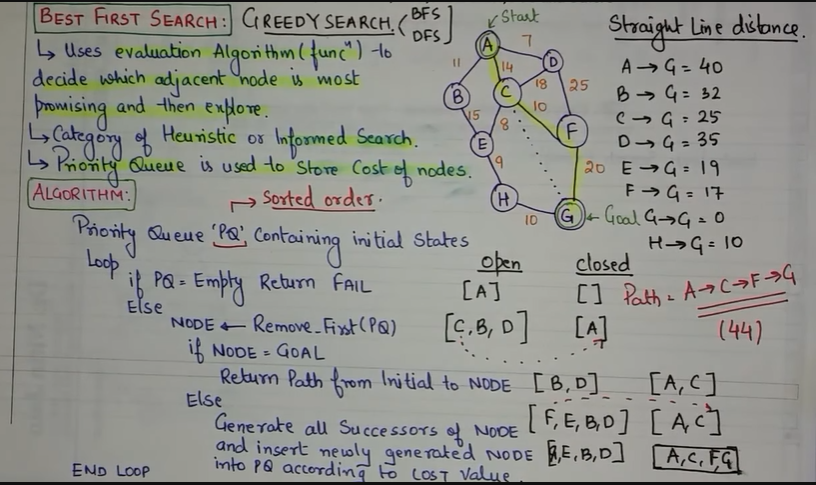 BEST FIRST SEARCH: GREEDY SEARCH. (BFS DFS]
↳ Uses evaluation Algorithm (funcⁿ) to
decide which adjacent node is most
promising and then explore.
↳ Category of Heuristic or Informed Search.
↳ Priority Queue is used to Store Cost of nodes.
ALGORITHM:
→ Sorted order.
Priority Queue 'PQ' Containing initial States
Loop
if PQ = Empty Return FAIL
Else
NODE ← Remove_First (PQ)
if NODE = GOAL
Return Path from Initial to NODE
Else
Generate all Successors of NODE
and insert newly generated NODE
into PQ according to COST Value.
END LOOP
Start
A
7
11
14
D
B
C
18
25
10
15
8
F
E
9
20
H
10
G ← Goal
Straight Line distance.
A → G = 40
B → G = 32
C → G = 25
D → G = 35
E → G = 19
F → G = 17
G → G = 0
H → G = 10
open closed
[A] []
[C, B, D] [A]
[B, D] [A, C]
[F, E, B, D] [A, C]
[G, E, B, D] [A, C, F, G]
Path = A → C → F → G
(44)